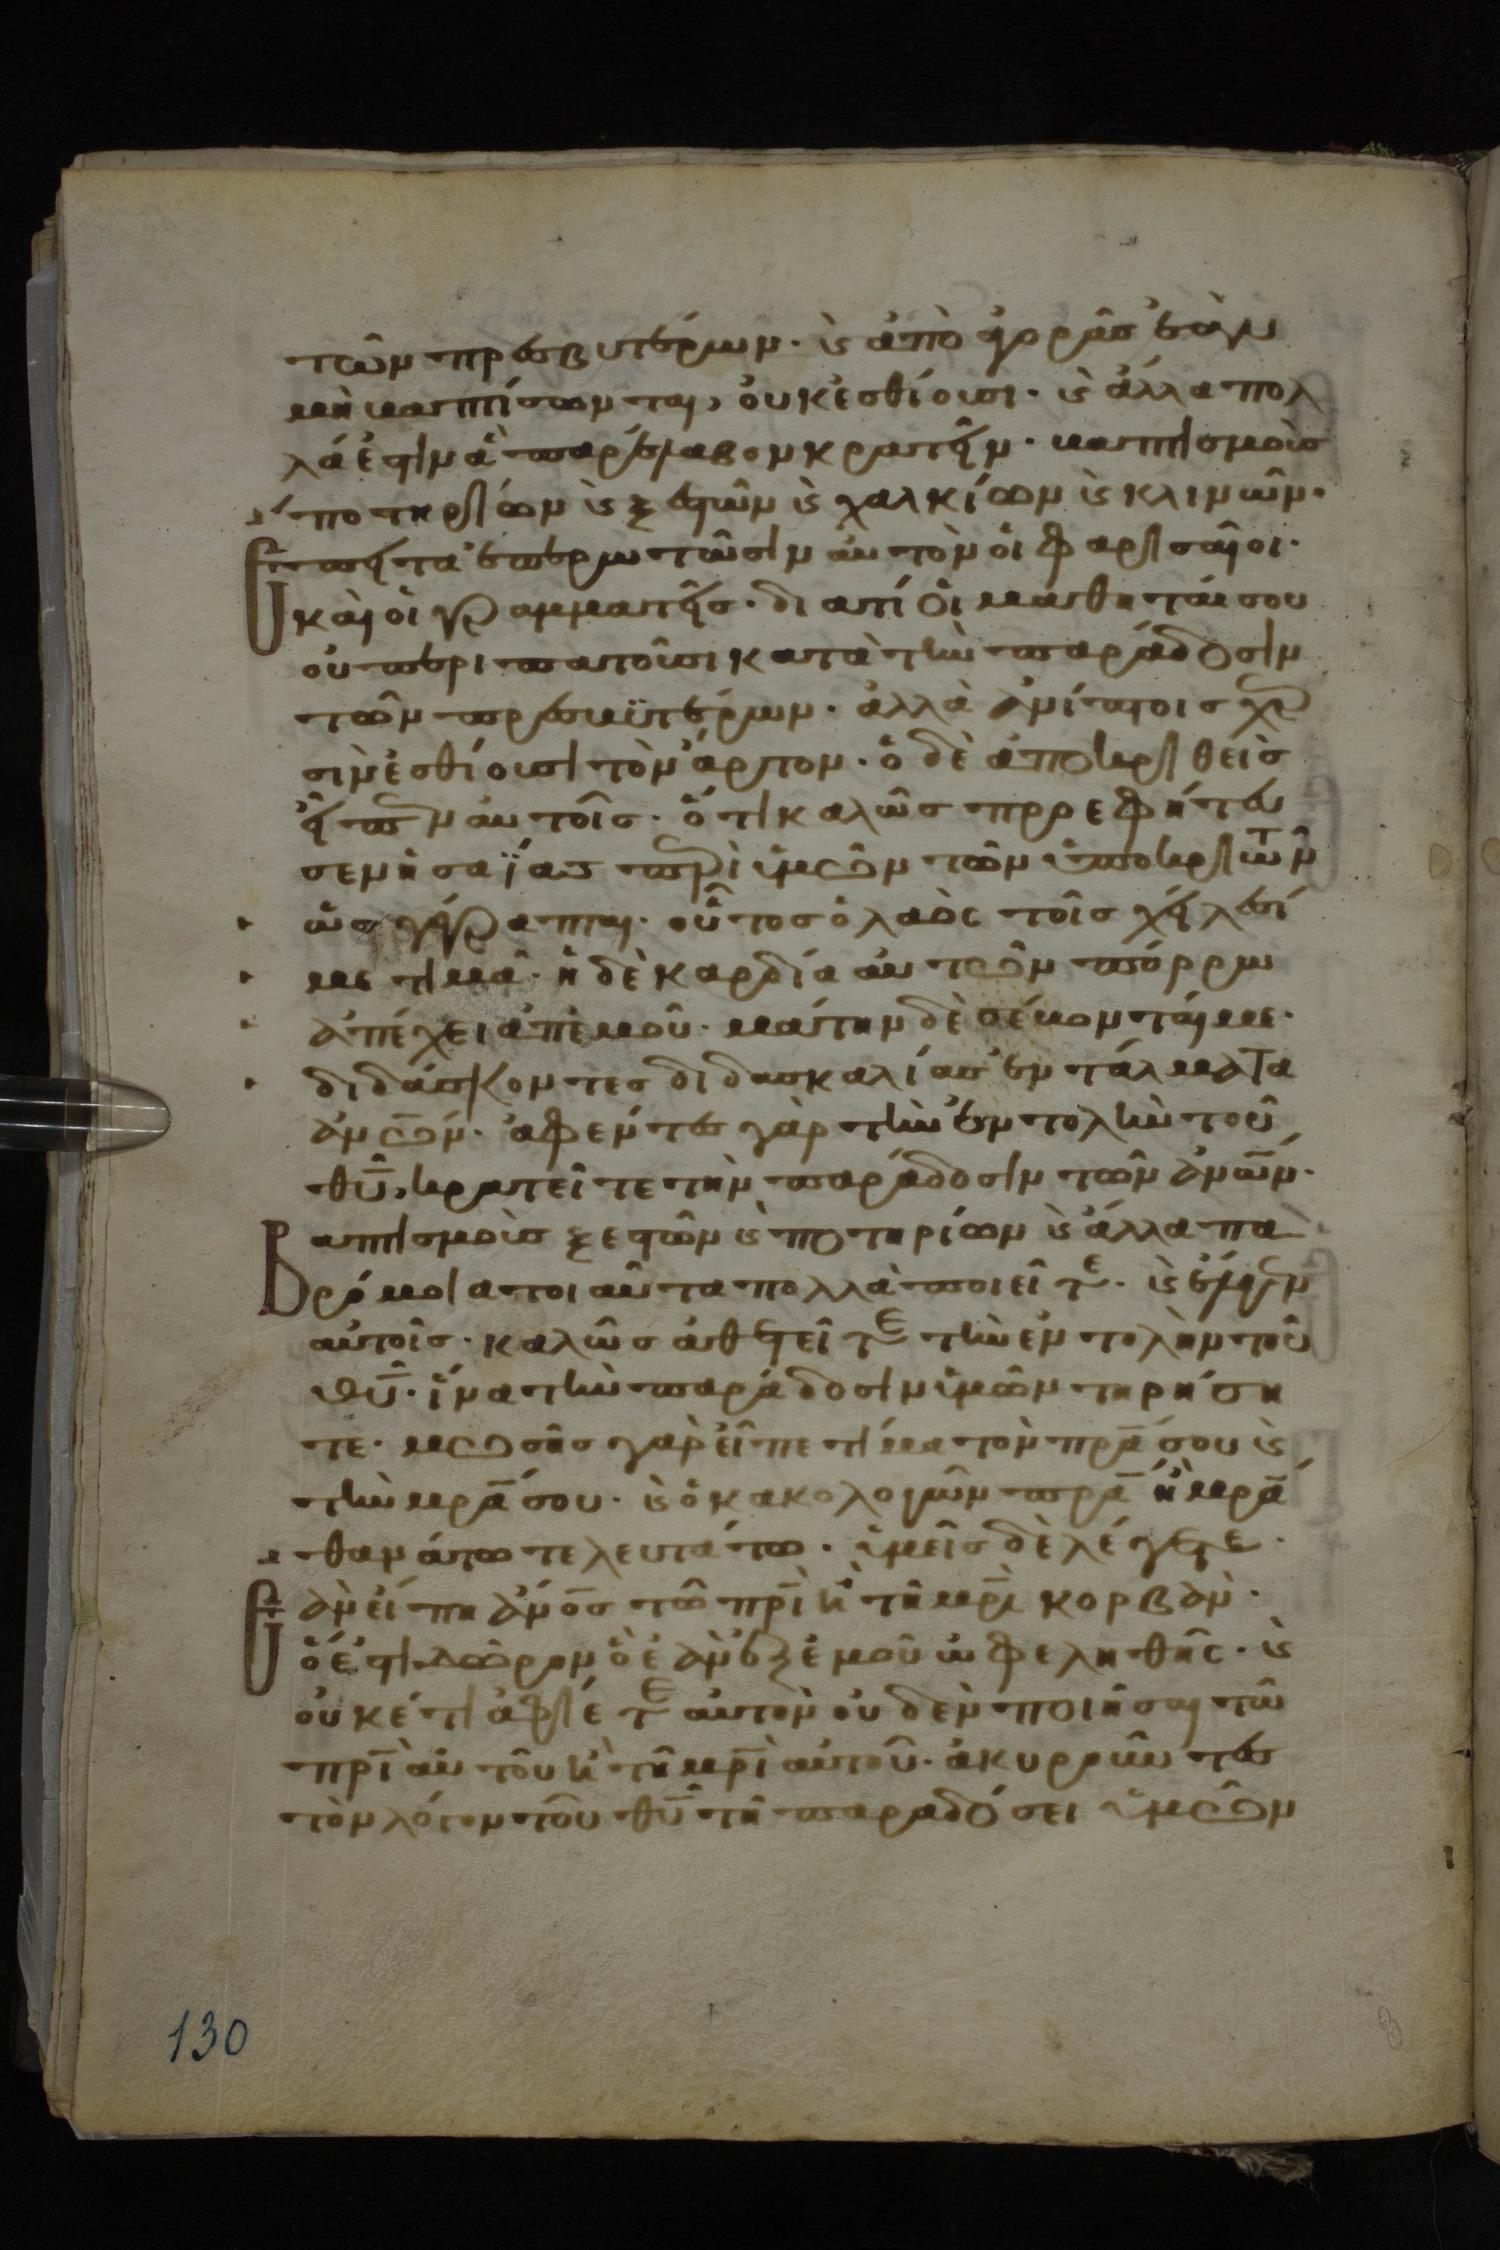 τῶν πρεσβυτέρων· κ(αὶ) ἀπὸ ἀγορᾶσ ἐὰν
μὴ βαπτίσωνται, οὐκ ἐσθίουσι· κ(αὶ) ἄλλα πολ
λά ἐστιν ἃ παρέλαβον κρατεῖν· βαπτισμοὺσ
ποτηρίων κ(αὶ) ξεστῶν κ(αὶ) χαλκίων κ(αὶ) κλινῶν·
Ἔπειτα ἐπερωτῶσιν αυτὸν οἱ φαρισαῖοι·
καὶ οἱ γραμματεῖσ· διατί οἱ μαθηταί σου
οὐ περιπατοῦσι κατὰ τὴν παράδοσιν
τῶν πρεσβϋτέρων· ἀλλὰ ἀνίπτοισ χερ
σὶν ἐσθίουσι τὸν ἄρτον· ὁ δὲ ἀποκριθεὶσ
εἶπεν αυτοῖσ· ὅτι καλῶσ προεφήτευ
σεν ἡσαΐασ περὶ ὑμῶν τῶν ὑποκριτῶν
ὡσ γέγραπται· οὗτοσ ὁ λαὸσ τοῖσ χείλεσί
με τιμᾶ· ἡ δὲ καρδία αυτῶν πόρρω
ἀπέχει ἀπ' ἐμοῦ· μάτην δὲ σέβονταί με·
διδάσκοντεσ διδασκαλίασ ἐντάλματα
ἀν̅ω̅ν· ἀφέντεσ γὰρ τὴν ἐντολὴν τοῦ
θ̅υ̅, κρατεῖτε τὴν παράδοσιν τῶν ἀν̅ω̅ν·
Βαπτισμοὺσ ξεστῶν κ(αὶ) ποτηρίων κ(αὶ) ἄλλα πα
ρόμοια τοιαῦτα πολλὰ ποιεῖτε· κ(αὶ) ἔλεγεν
αυτοῖσ· καλῶσ ἀθετεῖτε τὴν ἐντολὴν τοῦ
θ̅υ̅· ἵνα τὴν παράδοσιν ὑμῶν τηρήση
τε· μωσῆσ γὰρ εἶπε τίμα τὸν πρ̅α̅ σου κ(αὶ)
τὴν μρ̅α̅ σου· κ(αὶ) ὁ κακολογῶν πρ̅α̅ ἢ μρ̅α̅
θανάτω τελευτάτω· ὑμεῖσ δὲ λέγετε·
Ἐὰν εἴπη ἀν̅ο̅σ τῶ πρ̅ι̅ ἢ τῆ μρ̅ι̅ κορβὰν·
ὅ ἐστι δῶρον ὃ ἐὰν ἐξ ἐμοῦ ὠφεληθῆσ· κ(αὶ)
οὐκέτι ἀφίετε αυτὸν οὐδὲν ποιῆσαι τῶ
πρ̅ι̅ αυτοῦ ἢ τῆ μρ̅ι̅ αυτοῦ· ἀκυροῦντεσ
τὸν λόγον τοῦ θ̅υ̅ τῆ παραδόσει ὑμῶν
130